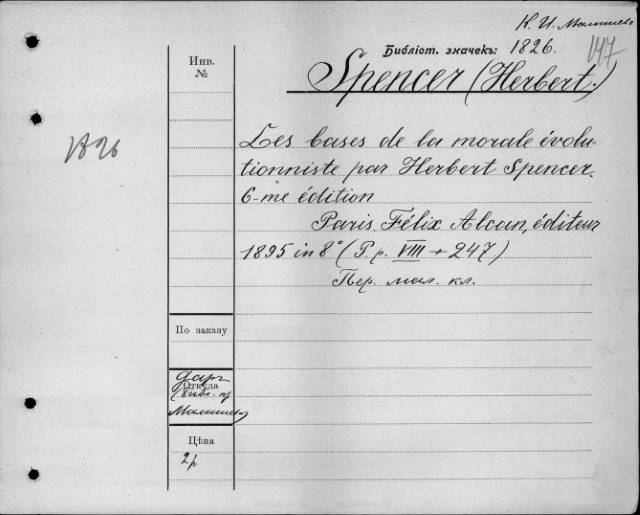 Н. И.
Библіот. значекъ: 1826.
147
Spencer (Herbert.)
Инв.
№
1826
Les bases de la morale évolu-
tionniste par Herbert Spencer.
6-me édition
Paris. Félix Alcan, éditeur
1895 in 8° (P. p. VIII + 247)
Пер. мал. кл.
По заказу
Откуда
Цѣна
2р